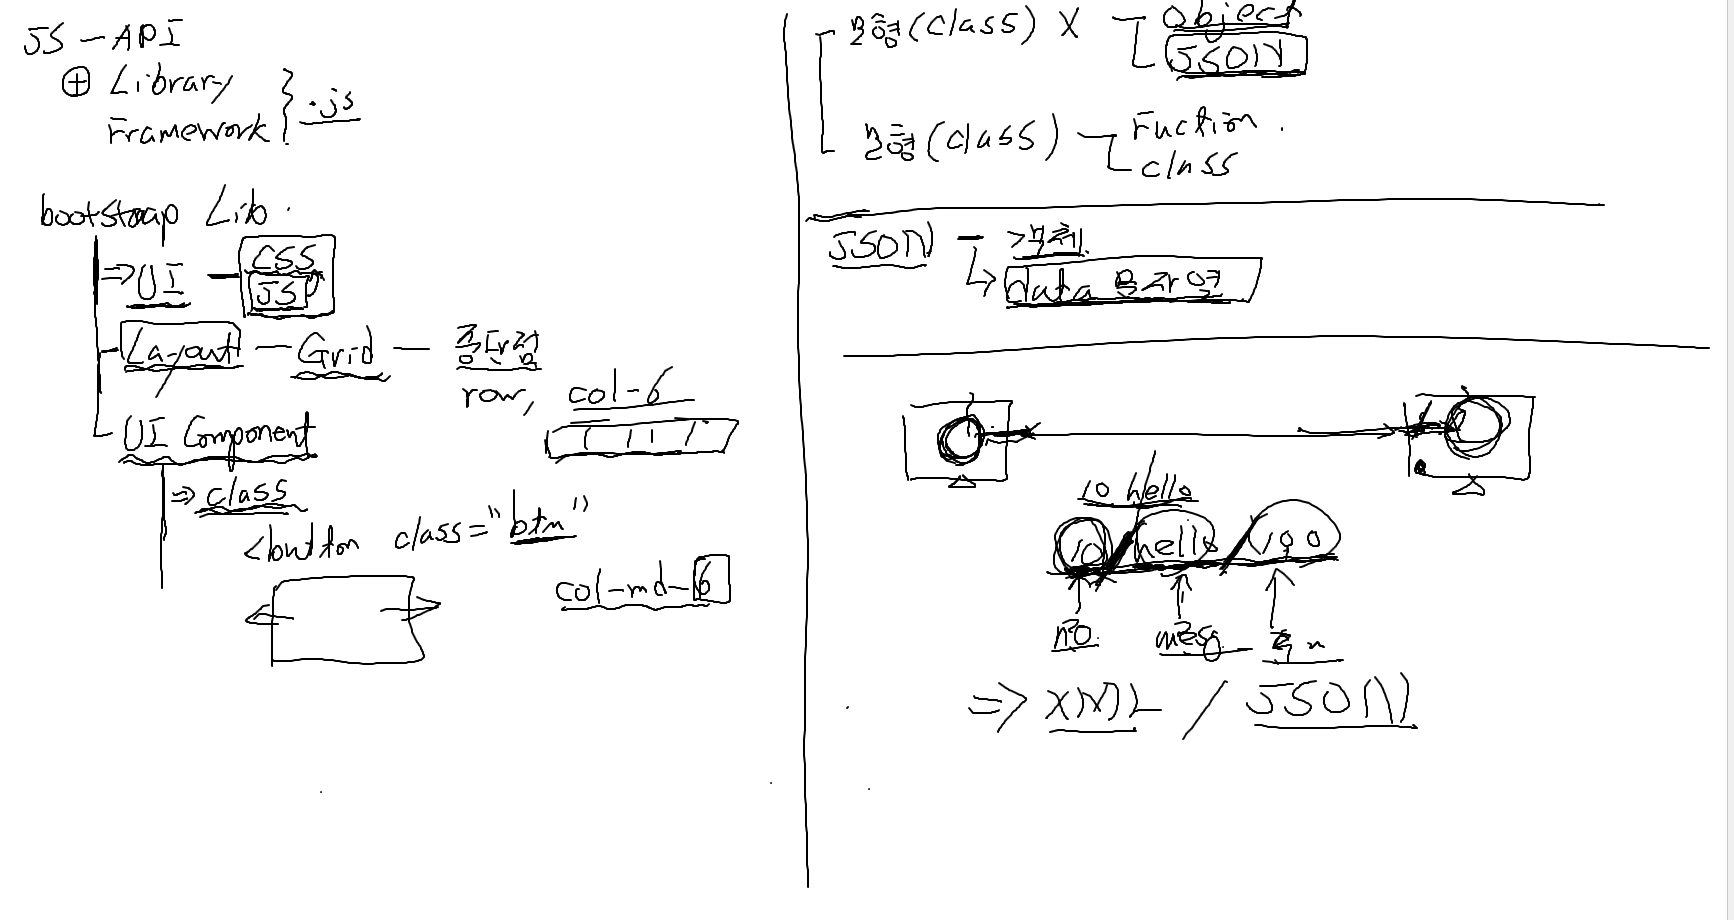 JS - API
⊕ Library
Framework } .js
bootstrap Lib.
⇒ UI - CSS
JS
Layout - Grid - 중단점
row, col-6
UI Component
⇒ class
<button class="btn"
col-md-6
모형(class) X - Object
JSON
모형(class) - Fuction.
class
JSON - 객체
→ data 문자열
10 hello
10 / hello / 100
no. mesg
⇒ XML / JSON